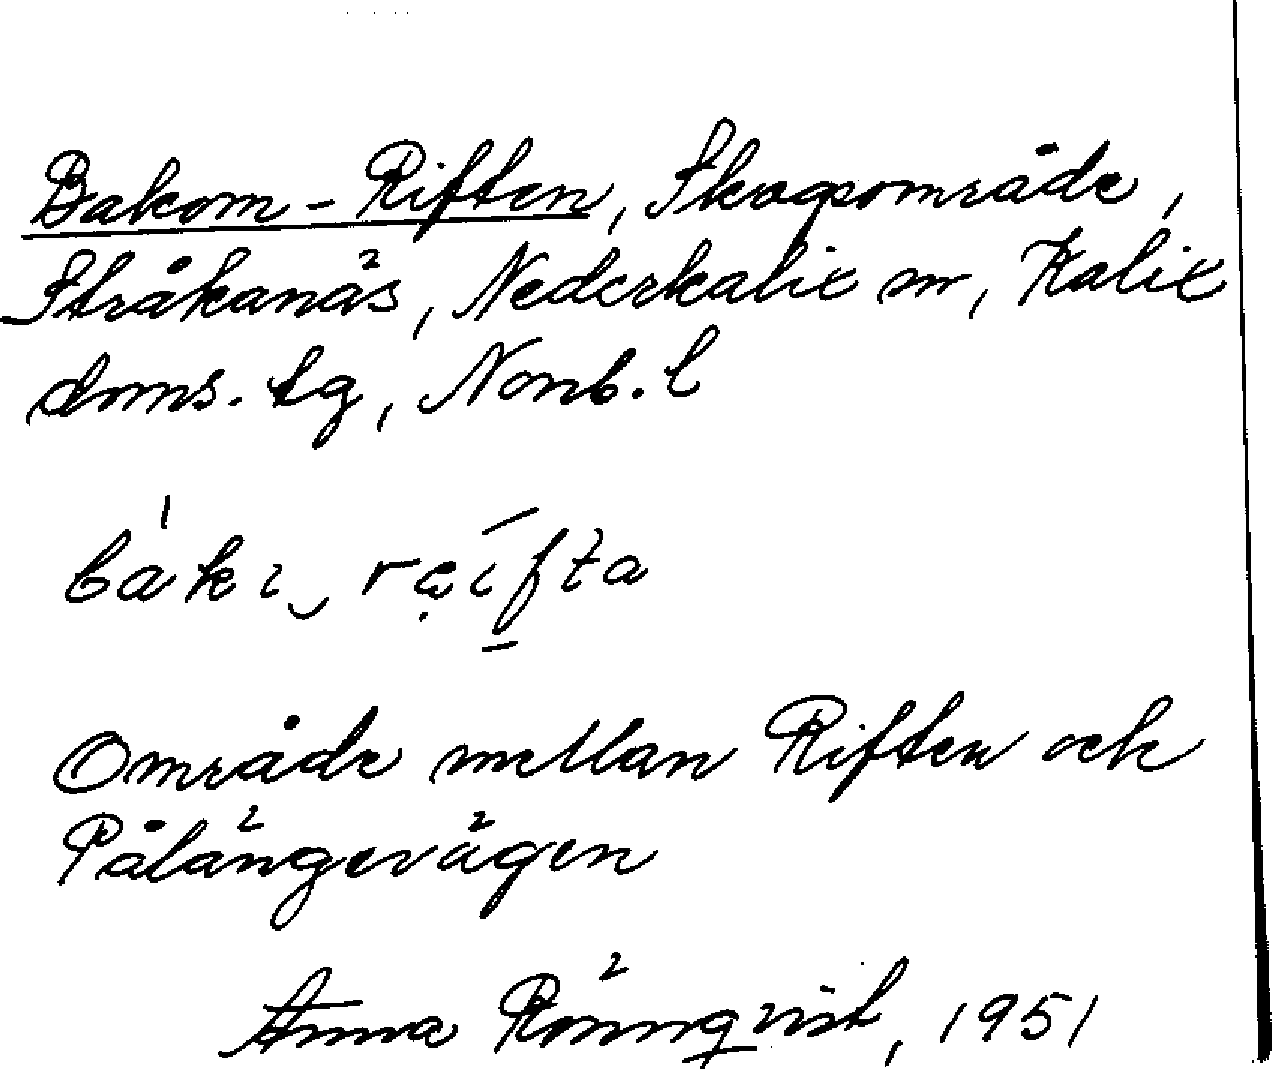 Bakom-Riften, Skogsområde,
Stråkanäs, Nederkalix sn, Kalix
doms. tg, Norrb. l
bakı‿ rẹifta
Område mellan Riften och
Pålängevägen
Anna Rönnqvist, 1951